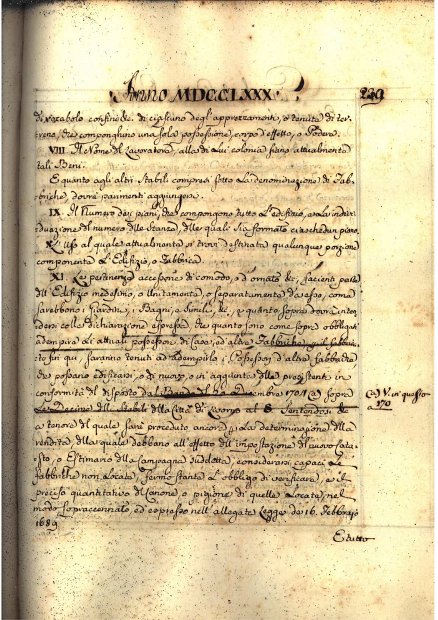 Anno MDCCLXXX.
239
di vocabolo confini &c. di ciascuno degl' appezzamenti, o tenute di ter-
reno, che componghino una sola possessione, corpo d'effetto, o Podere.
VIII. Il Nome del Lavoratore, alla di Lui colonia siano attualmente
tali Beni.
E quanto agli altri Stabili compresi sotto La denominazione di Fab-
briche, dovrà parimenti aggiungersi
IX. Il Numero dei piani, che compongono tutto L'edifizio, e La indivi-
duazione del numero delle stanze, delle quali sia formato ciaschedun piano.
X. L'uso al quale attualmente si trovi destinata qualunque porzione
componente L'Edifizio, o Fabbrica.
XI. Le pertinenze accessorie di comodo, o d'ornato &c., facienti parte
dell'Edifizio medesimo, o Unitamente, o separatamente da esso, come
sarebbono i Giardini, i Bagni, e simili, &c., e quanto sopra dovrà inten-
dersi colla dichiarazione espressa, che quanto sono come sopra obbligati
adempire gli attuali possessori di Case, ed altre Fabbriche
fin qui, saranno tenuti ad adempirlo i Possessori d'altre fabbriche
che possano edificarsi, o di nuovo, o in aggiunta alle presistenti in
conformità del disposto dal Bando del dì Decembre 1701 (a) sopra
Le Decime delli Stabili della Città di Livorno al § Intendendosi &c.
a tenore del quale sarà proceduto ancora alla determinazione della
rendita, della quale debbano all'effetto dell'impostazione di nuovo Cata-
sto, o Estimario della Campagna suddetta, considerarsi capaci Le
Fabbriche non Locate, fermo stante L'obbligo di verificare, e il
preciso quantitativo del Canone, o pigione di quelle Locate, nel
modo sopraccennato, ed espresso nell'allegata Legge de 16. Febbrajo
1689
(a) V. in questo
a 170
E tutto